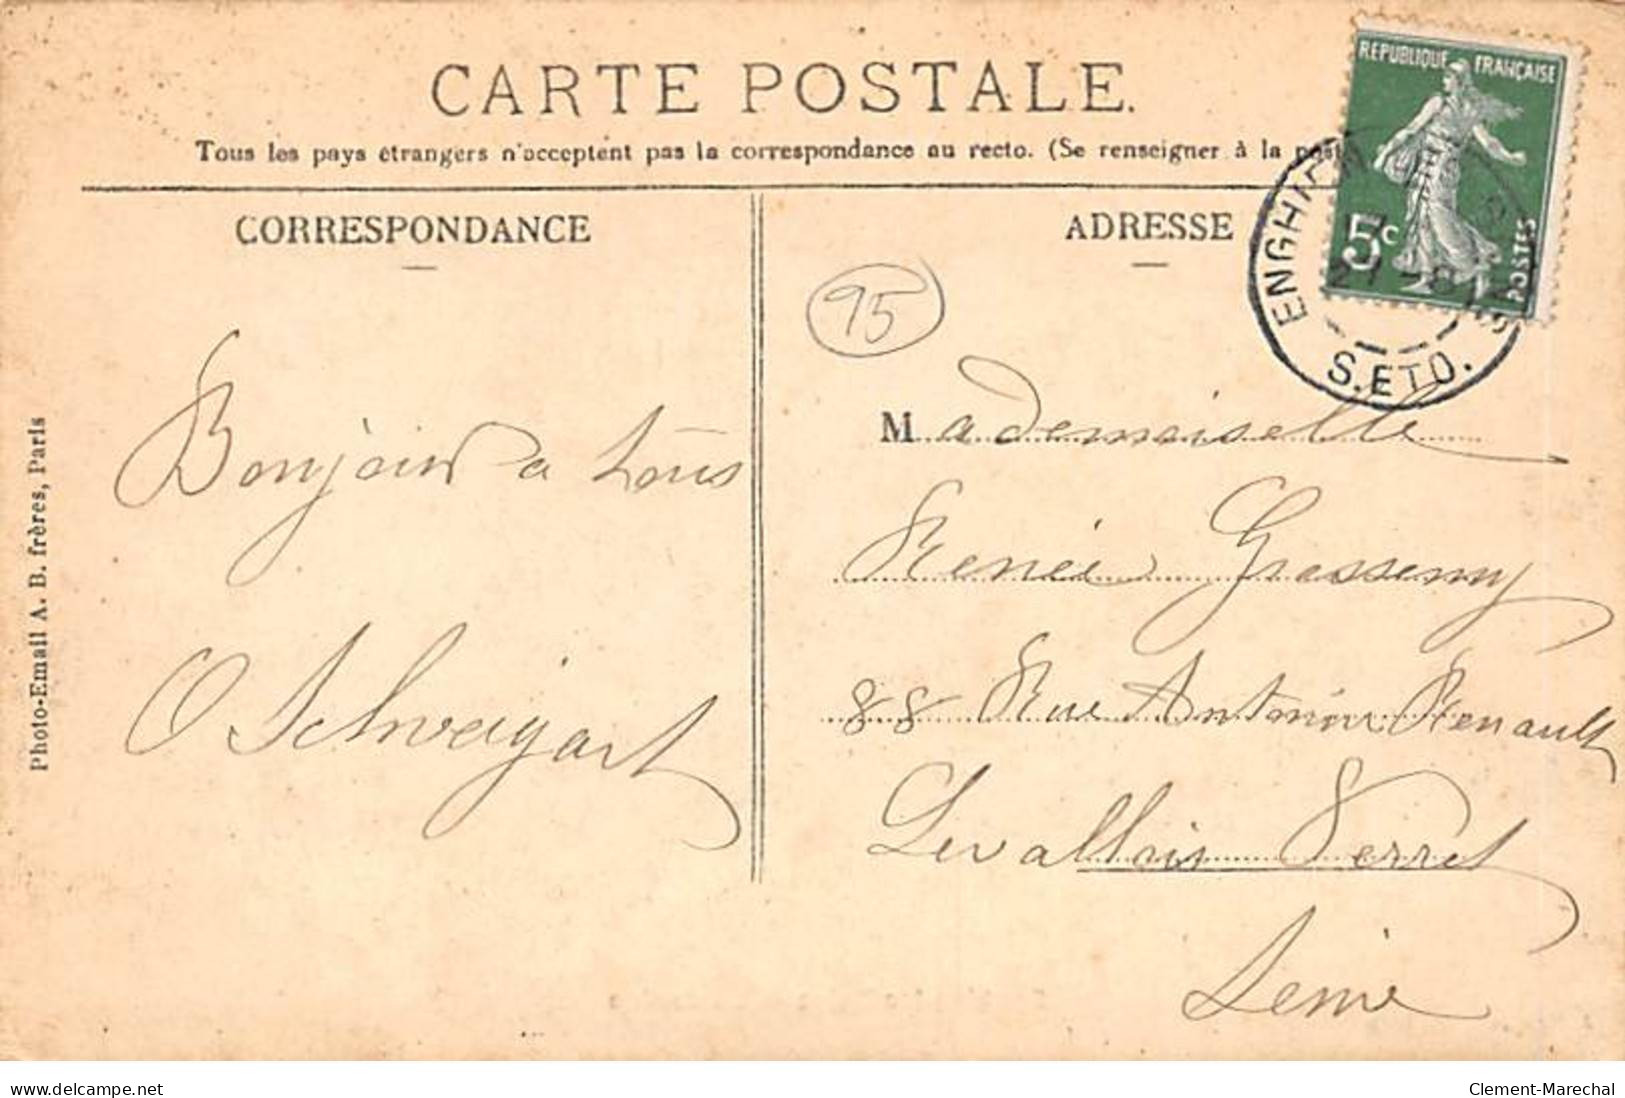 CARTE POSTALE.
Tous les pays étrangers n'acceptent pas la correspondance au recto. (Se renseigner à la
CORRESPONDANCE
ADRESSE
RÉPUBLIQUE FRANÇAISE
5c
POSTES
ENGHIEN
21 -8
S.ET O.
95
Bonjour a tous
O Schweigart
Mademoiselle
Renée
88 Rue Antonin Renault
Levallois Perret
Seine
Photo-Email A. B. frères, Paris
www.delcampe.net
Clement-Marechal